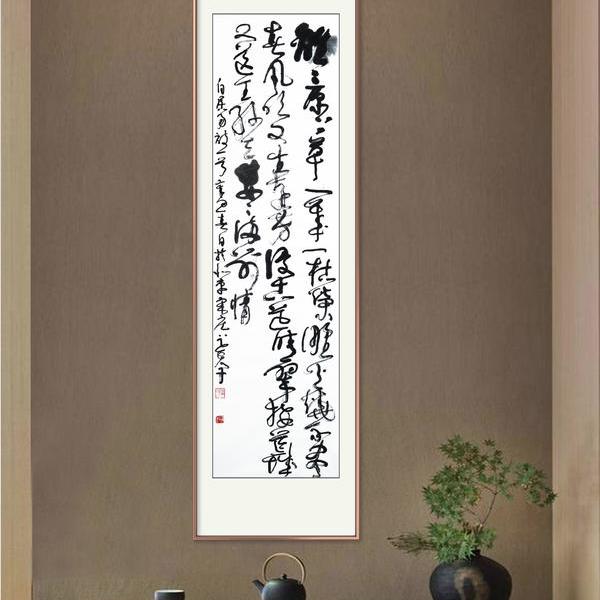 離〻原上草一歲一枯榮野火燒不盡
春風吹又生遠芳侵古道晴翠接荒城
又送王孫去萋〻滿別情
白居易詩一首 春日於北京